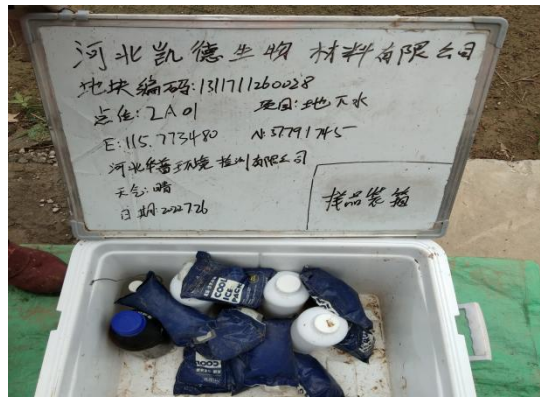 河北凯德生物材料有限公司
地块编码:1311711260028
点位:2A01 项目:地下水
E:115.773480 N:37.791745
河北华普环境检测有限公司
天气:晴
日期:2022.7.26
样品装箱
COOL
ICE
PACK